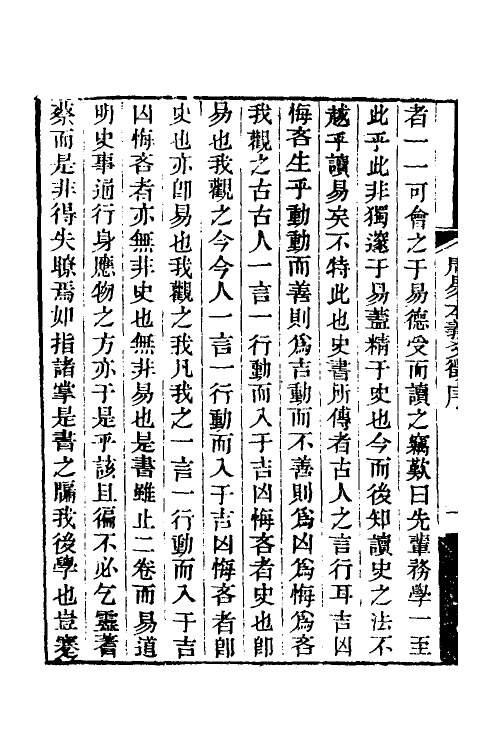 者一一可會之于易德受而讀之竊歎曰先輩務學一至
此乎此非獨邃于易蓋精于史也今而後知讀史之法不
越乎讀易矣不特此也史書所傳者古人之言行耳吉凶
悔吝生乎動動而善則爲吉動而不善則爲凶爲悔爲吝
我觀之古古人一言一行動而入于吉凶悔吝者史也卽
易也我觀之今今人一言一行動而入于吉凶悔吝者卽
史也亦卽易也我觀之我凡我之一言一行動而入于吉
凶悔吝者亦無非史也無非易也是書雖止二卷而易道
明史事通行身應物之方亦于是乎該且徧不必乞靈蓍
蔡而是非得失瞭焉如指諸掌是書之牖我後學也豈寒
周易本義爻徵序
一